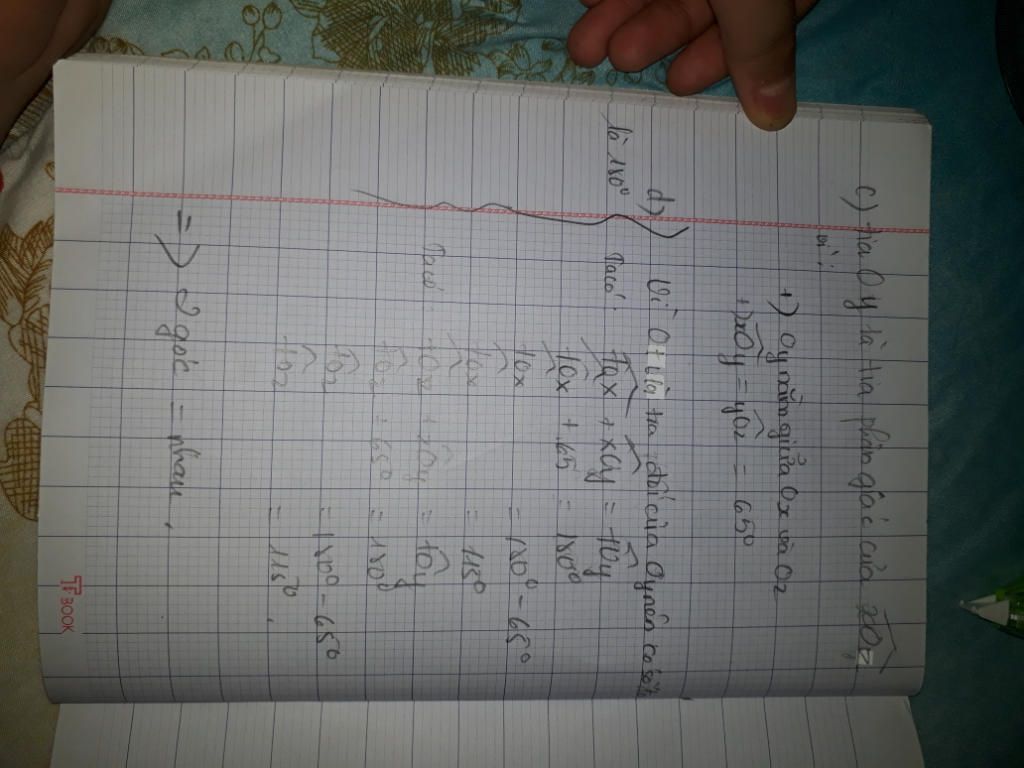 c) tia Oy là tia phân giác của xOz
vì:
+) Oy nằm giữa Ox và Oz
+) xOy = yOz = 65°
d) Vì Ot là tia đối của Oy nên có số đo
là 180°
Ta có: tOx + xOy = tOy
tOx + 65 = 180°
tOx = 180° - 65°
tOx = 115°
Ta có: tOz + xOy = tOy
tOz + 65° = 180°
tOz = 180° - 65°
tOz = 115°.
=> 2 góc = nhau.
TP BOOK